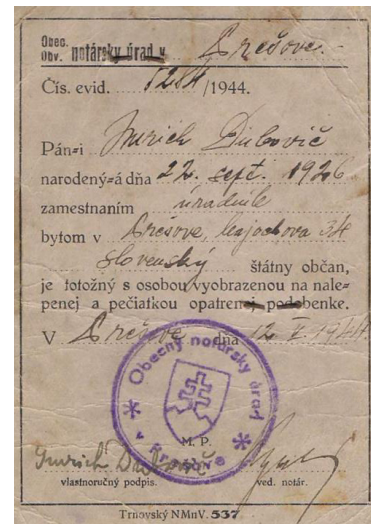 Obec.
Obv. notársky úrad v Prešove.-
Čís. evid. /1944.
Pán-i Imrich Dubovič
narodený-á dňa 22. sept. 1926
zamestnaním úradník
bytom v Prešove, 34
slovenský štátny občan,
je totožný s osobou vyobrazenou na nale-
penej a pečiatkou opatrenej podobenke.
V Prešove dňa 12 V. 1944.
Obecný notársky úrad
M. P.
Imrich Dubovič
vlastnoručný podpis. ved. notár.
Trnovský NMnV. 537